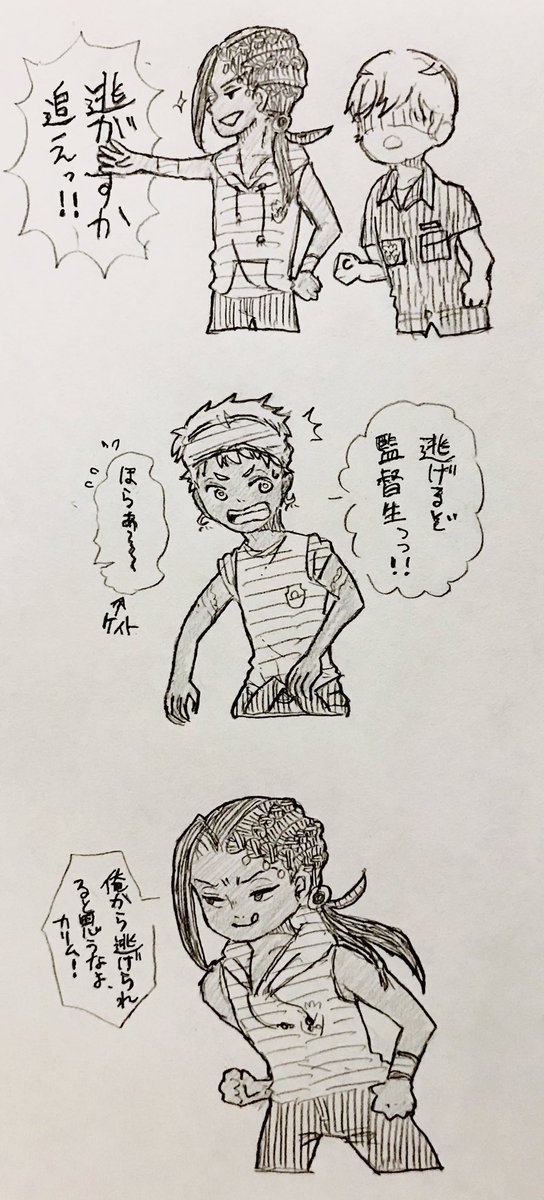 逃がすか
追えっ!!
逃げるぞ
監督生っっ!!
ほらあ〜〜〜
ケイト
俺から逃げられ
ると思うなよ、
カリム!